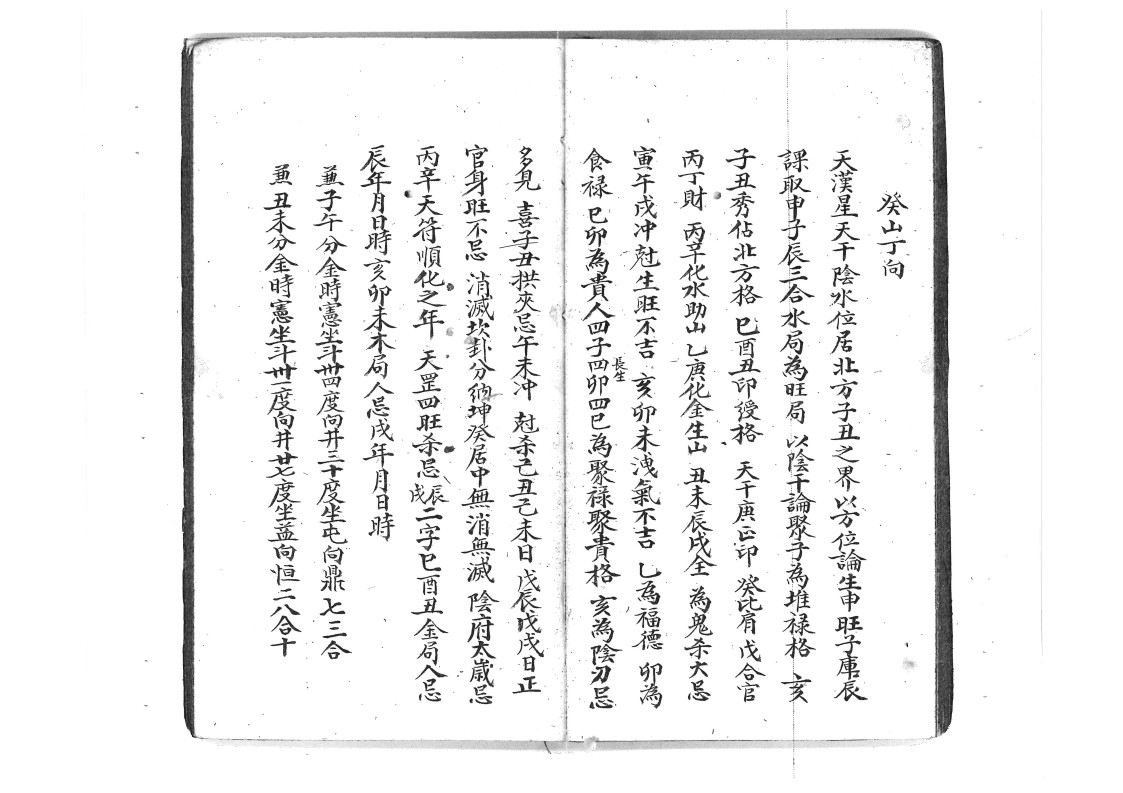 癸山丁向
天漢星天干陰水位居北方子丑之界以方位論生申旺子庫辰
課取申子辰三合水局為旺局 以陰干論聚子為堆禄格 亥
子丑秀佔北方格 巳酉丑印綬格 天干庚正印 癸比肩 戊合官
丙丁財 丙辛化水助山 乙庚化金生山 丑未辰戌全 為鬼杀大忌
寅午戌冲尅生旺不吉 亥卯未洩氣不吉 乙為福德 卯為
長生
食禄 巳卯為貴人四子四卯四巳為聚禄聚貴格 亥為陰刃忌
多見 喜子丑拱夾忌午未冲 尅杀己丑己未日 戊辰戊戌日正
官身旺不忌 消滅坎卦分納坤癸居中無消無滅 陰府太歲忌
丙辛天符順化之年 天罡四旺杀忌辰戌二字巳酉丑金局人忌
辰年月日時亥卯未木局人忌戌年月日時
兼子午分金時憲坐斗卄四度向井三十度坐屯向鼎 七三合
兼丑未分金時憲坐斗卄一度向井廿七度坐益向恒 二八合十